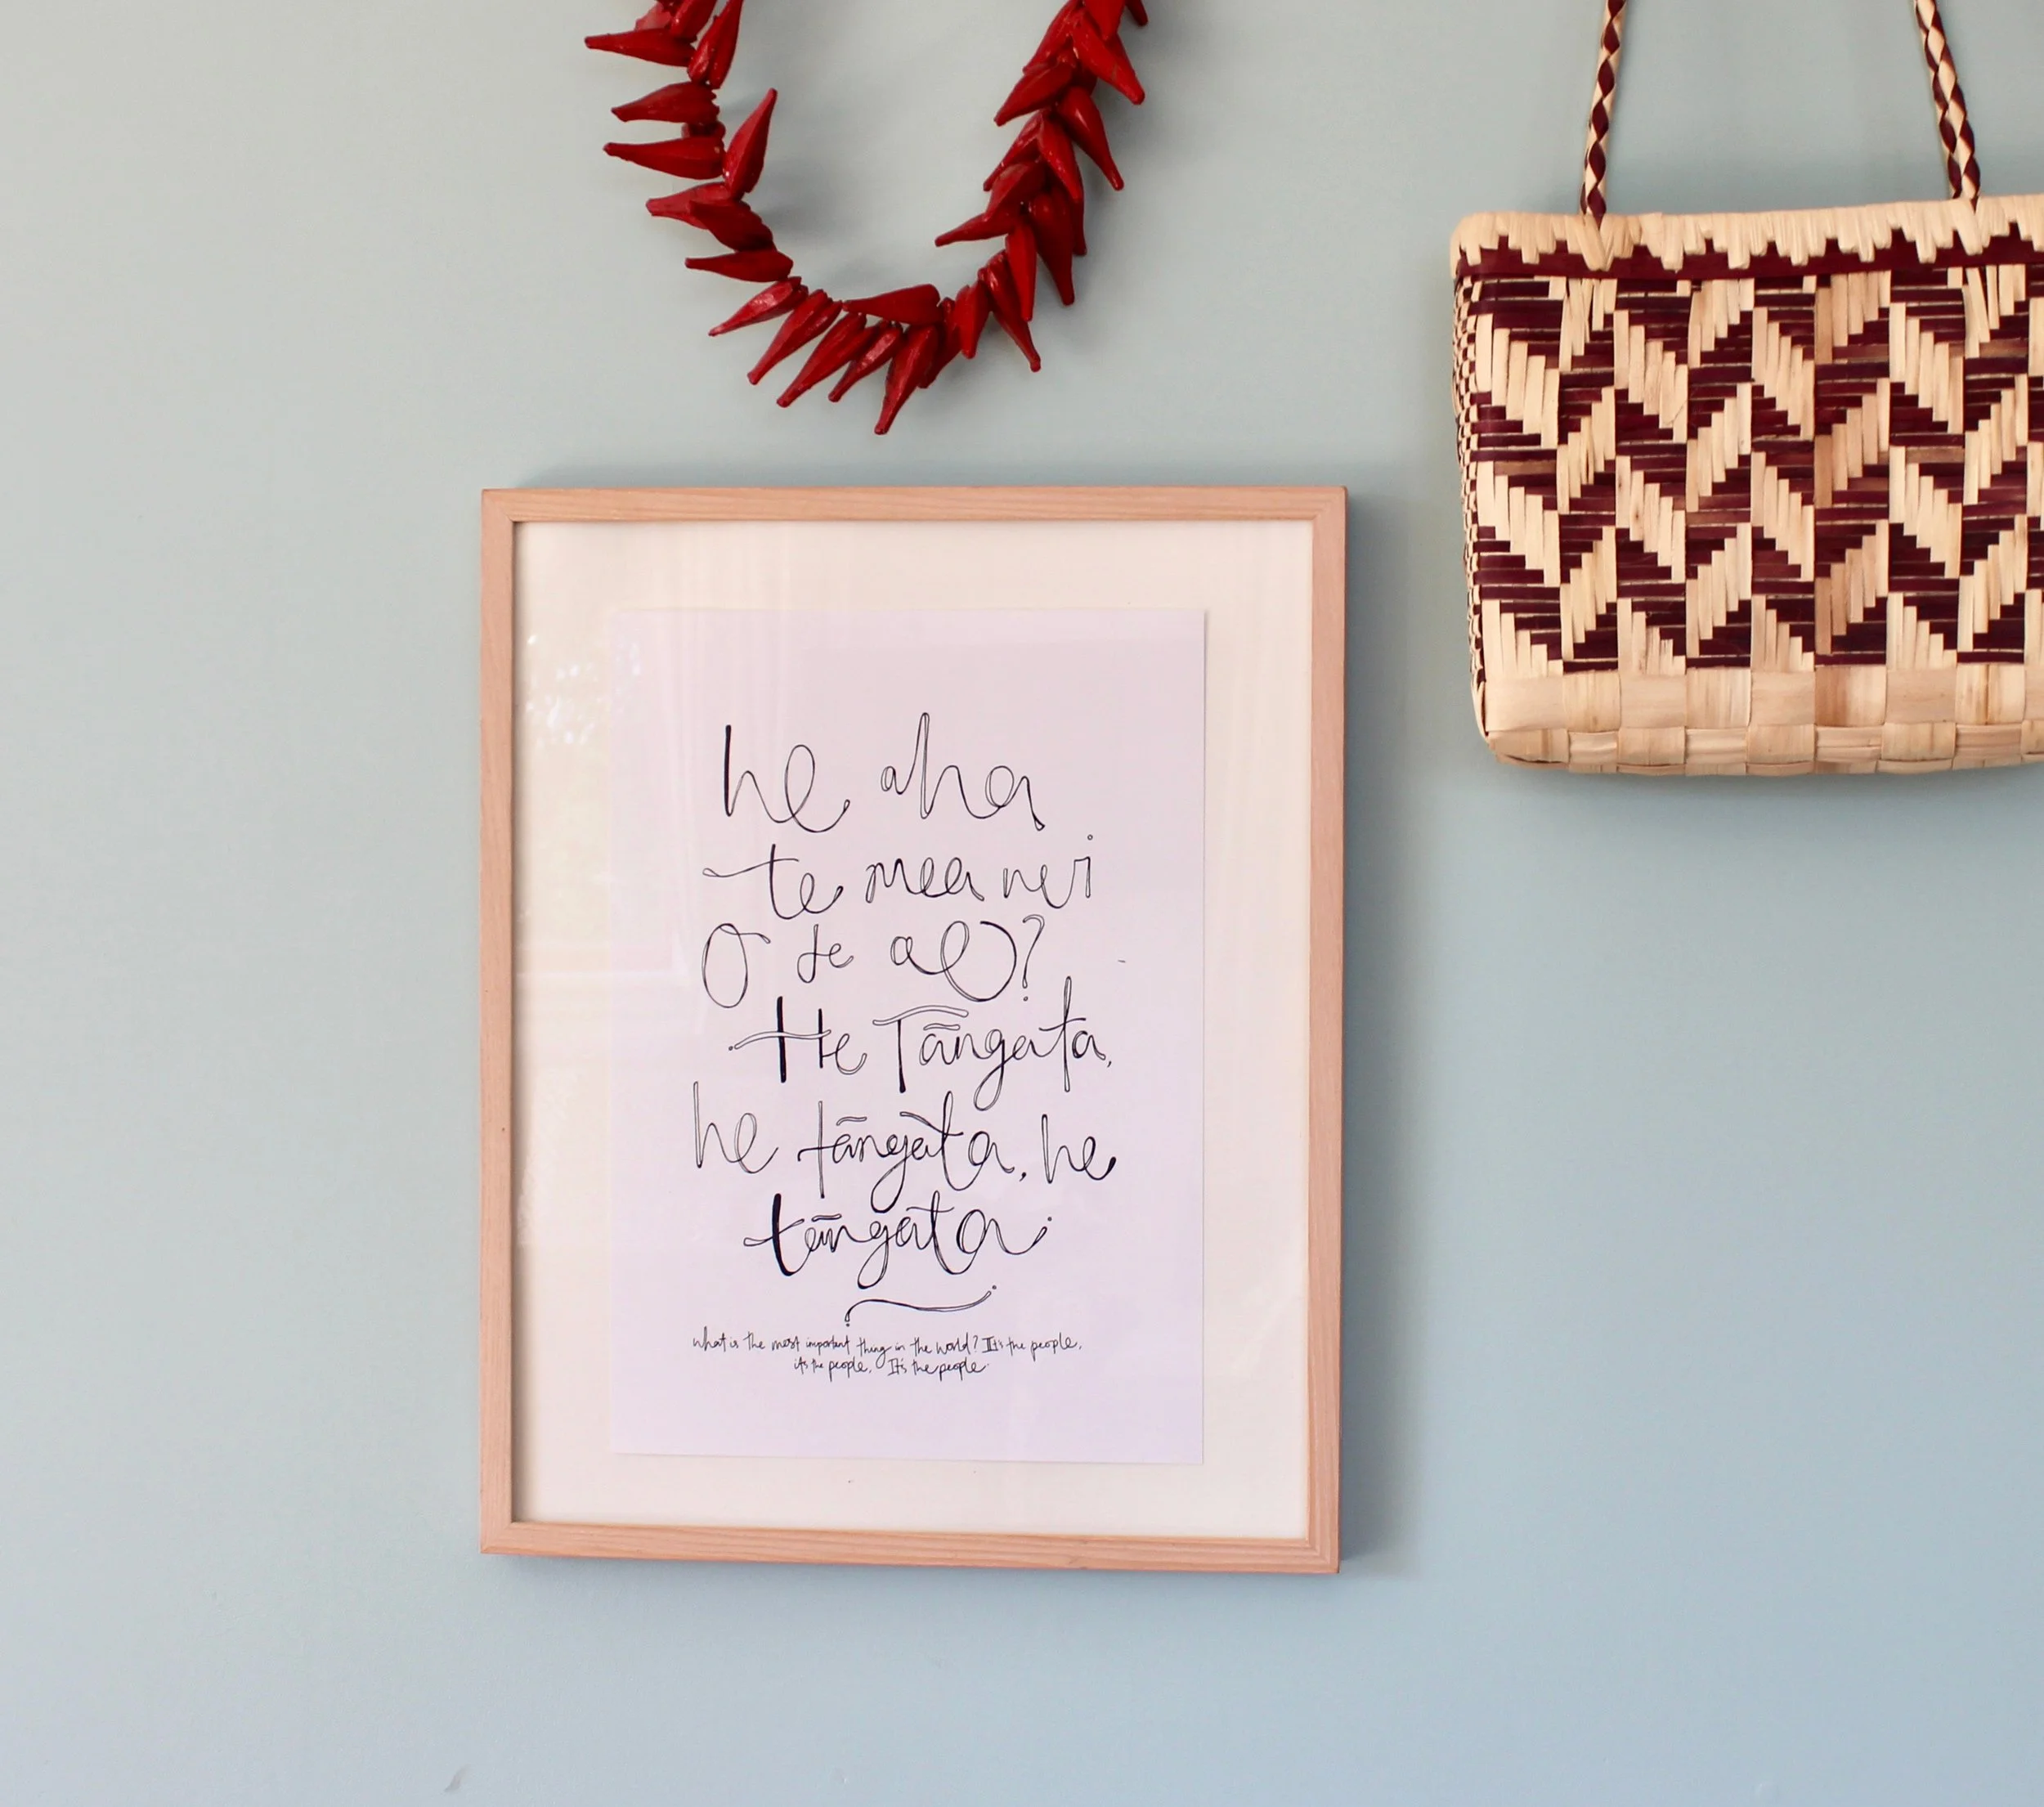 he aha
te mea nui
o te ao?
He Tāngata,
he tāngata, he
tāngata.
what is the most important thing in the world? It's the people,
it's the people, It's the people.